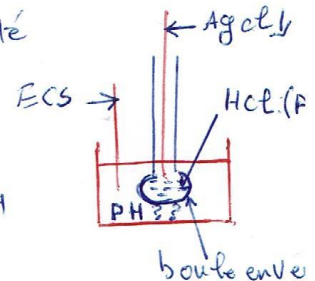 té
AgCl
ECS
HCl (F
PH ??
boule en ve